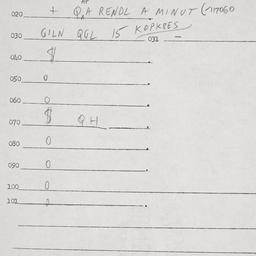 020 + Q,A RENDL A MINUT (~117060
030 GILN QGL 15 KOPKRES
031 -
040
050 0
060 0
070 QH
080 0
090 0
100 0
101